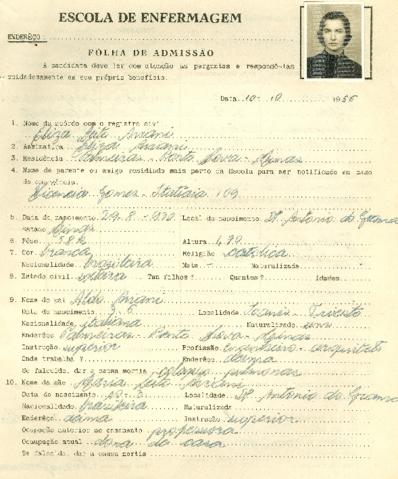 ESCOLA DE ENFERMAGEM
ENDERÊÇO
FOLHA DE ADMISSÃO
A candidata deve ler com atenção as perguntas e respondê-las
cuidadosamente em seu próprio benefício.
Data 10-10 1956
1. Nome de acôrdo com o registro civil
Eliza Leite Mariani
2. Assinatura Eliza Mariani
3. Residência Palmeiras - Ponte Nova - Minas
4. Nome de parente ou amigo residindo mais perto da Escola para ser notificado em caso
de emergência.
Gomes - Itatiaia 109
5. Data do nascimento Local do nascimento St. Antonio do Grama
Estado Minas
6. Pêso 58 k Altura
7. Côr branca Religião católica
Nacionalidade brasileira Nata - Naturalizada
8. Estado civil solteira Tem filhos? Quantos? Idades
9. Nome do pai Aldo Mariani
Data do nascimento Localidade
Nacionalidade italiana Naturalizado sim
Endereço Palmeiras - Ponte Nova - Minas
Instrução superior Profissão engenheiro - arquiteto
Onde trabalha? Endereço
Se falecido, dar a causa mortis colapso pulmonar
10. Nome da mãe Maria Leite Mariani
Data do nascimento Localidade St. Antonio do Grama
Nacionalidade brasileira Naturalizada
Endereço Instrução superior
Ocupação anterior ao casamento professora
Ocupação atual dona de casa
Se falecida, dar a causa mortis